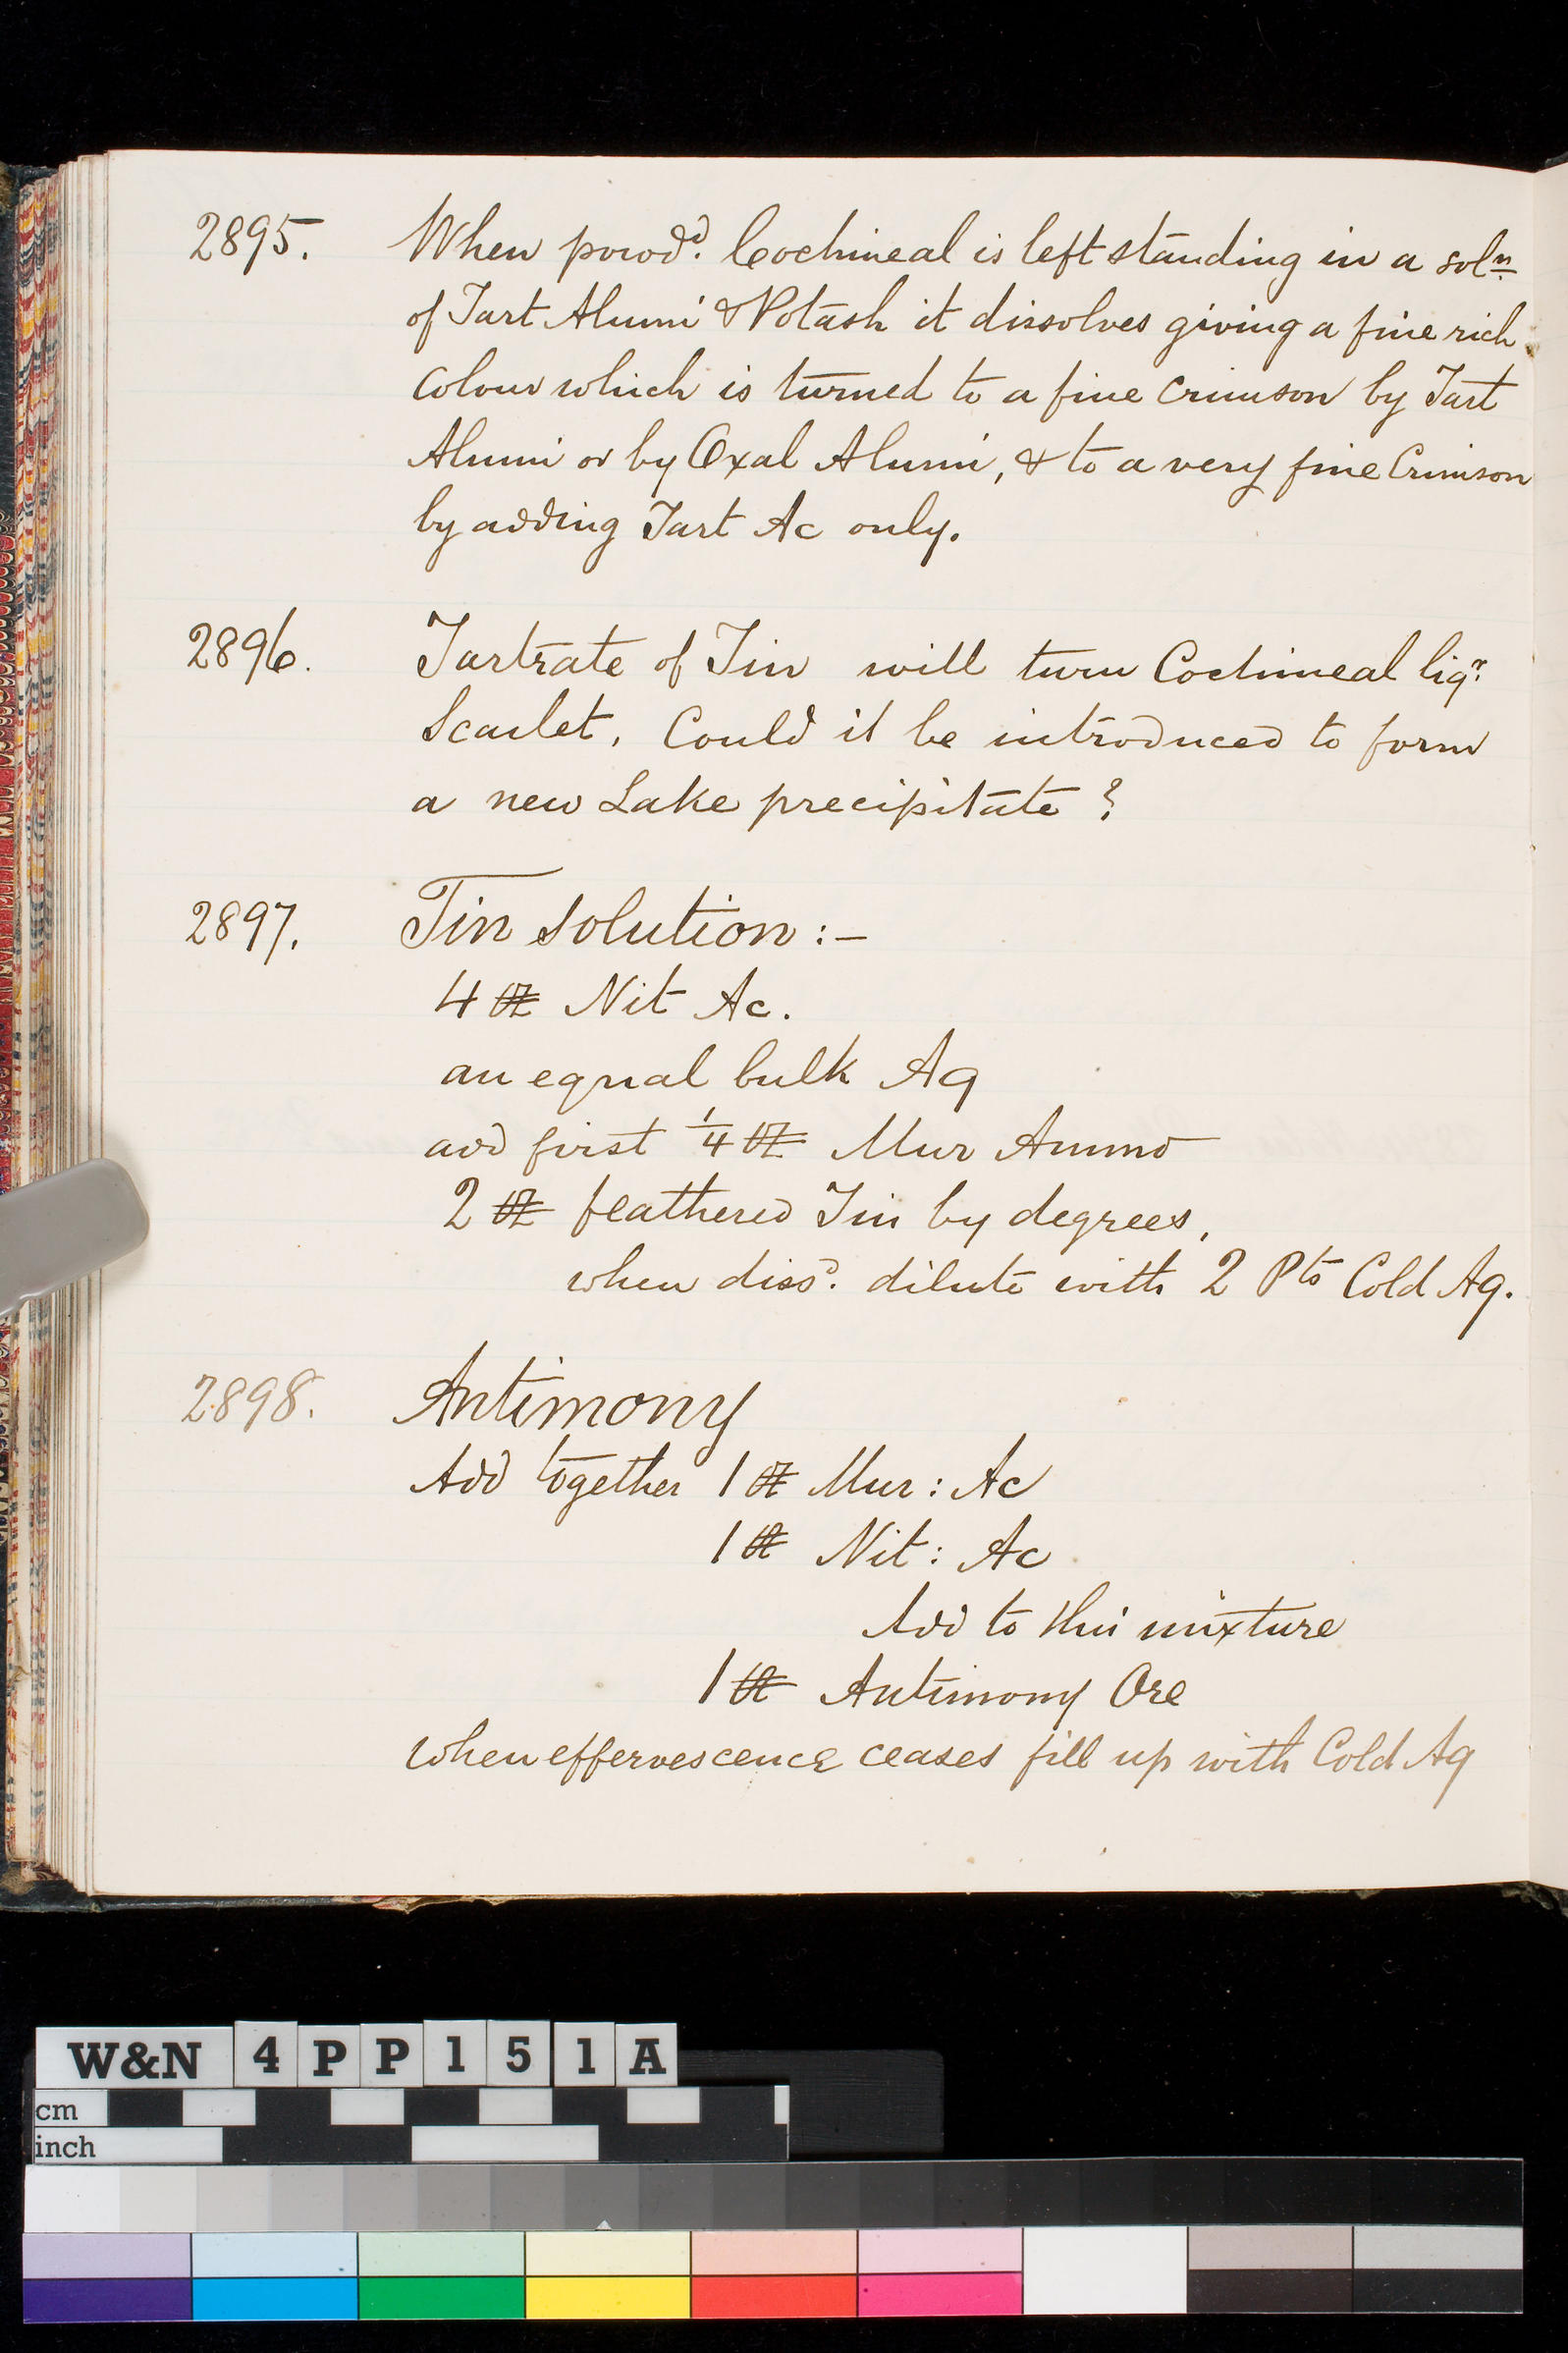 2895. When powdd. Cochineal is left standing in a soln.
of Tart Alumi & Potash it dissolves giving a fine rich
Colour which is turned to a fine Crimson by Tart
Alumi or by Oxal Alumi, & to a very fine Crimson
by adding Tart Ac only.
2896. Tartrate of Tin will turn Cochineal liqr.
Scarlet, Could it be introduced to form
a new Lake precipitate ?
2897. Tin Solution :-
4 ℔ Nit Ac.
an equal bulk Aq
add first 1/4 ℔ Mur Ammo
2 ℔ feathered Tin by degrees,
when dissd. dilute with 2 Pts Cold Aq.
2898. Antimony
Add together 1 ℔ Mur : Ac
1 ℔ Nit : Ac
Add to this mixture
1 ℔ Antimony Ore
when effervescence ceases fill up with Cold Aq
W&N 4PP151A
cm
inch